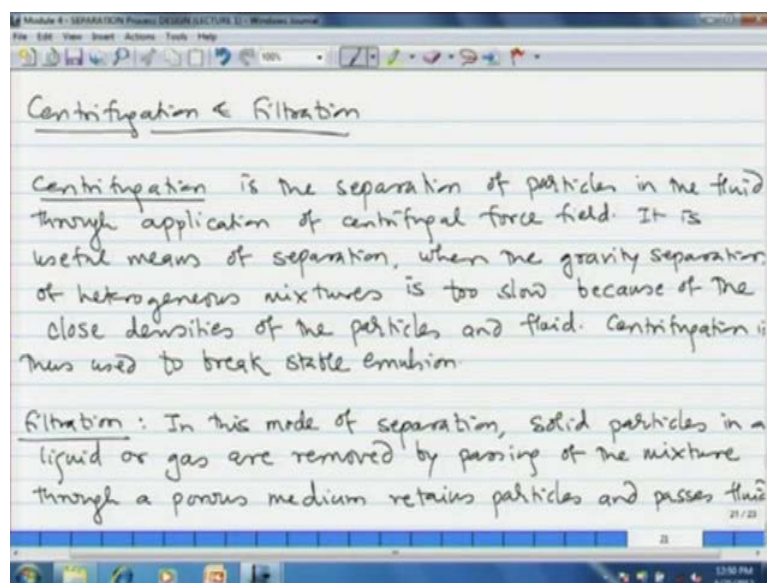 Module 4 - SEPARATION Process DESIGN (LECTURE 1) - Windows Journal
File Edit View Insert Actions Tools Help
100%
Centrifugation & Filtration
Centrifugation is the separation of particles in the fluid
through application of centrifugal force field. It is
useful means of separation, when the gravity separation
of heterogeneous mixtures is too slow because of the
close densities of the particles and fluid. Centrifugation is
thus used to break stable emulsion.
Filtration : In this mode of separation, solid particles in a
liquid or gas are removed by passing of the mixture
through a porous medium retains particles and passes fluid
21 / 23
21
12:50 PM